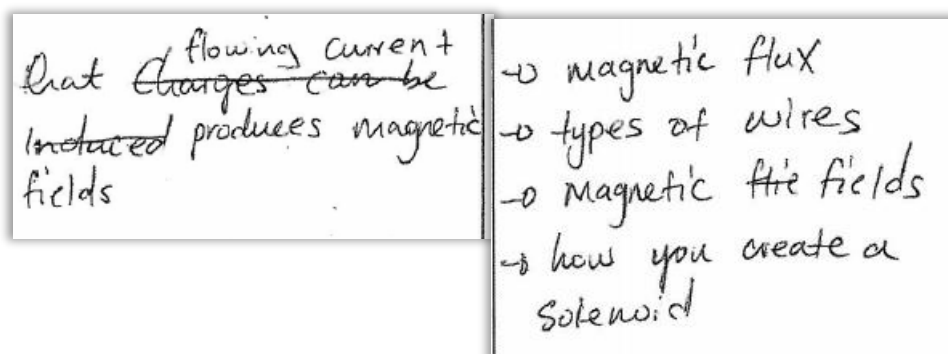 flowing current
that Charges can be
Induced produces magnetic
fields
→ magnetic flux
→ types of wires
→ Magnetic flie fields
→ how you create a
Solenoid